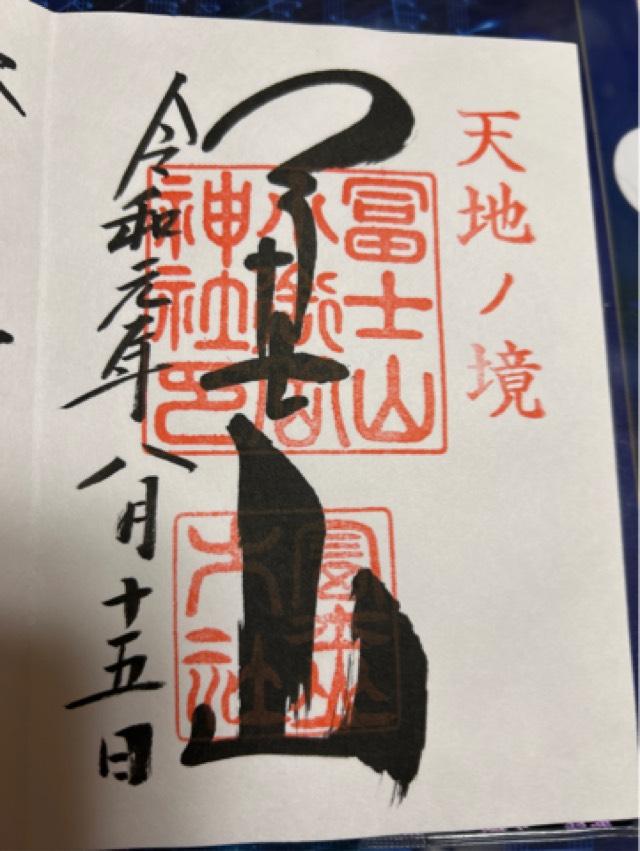 天地ノ境
富士山
小御嶽
神社印
冨士山
令和元年八月十五日